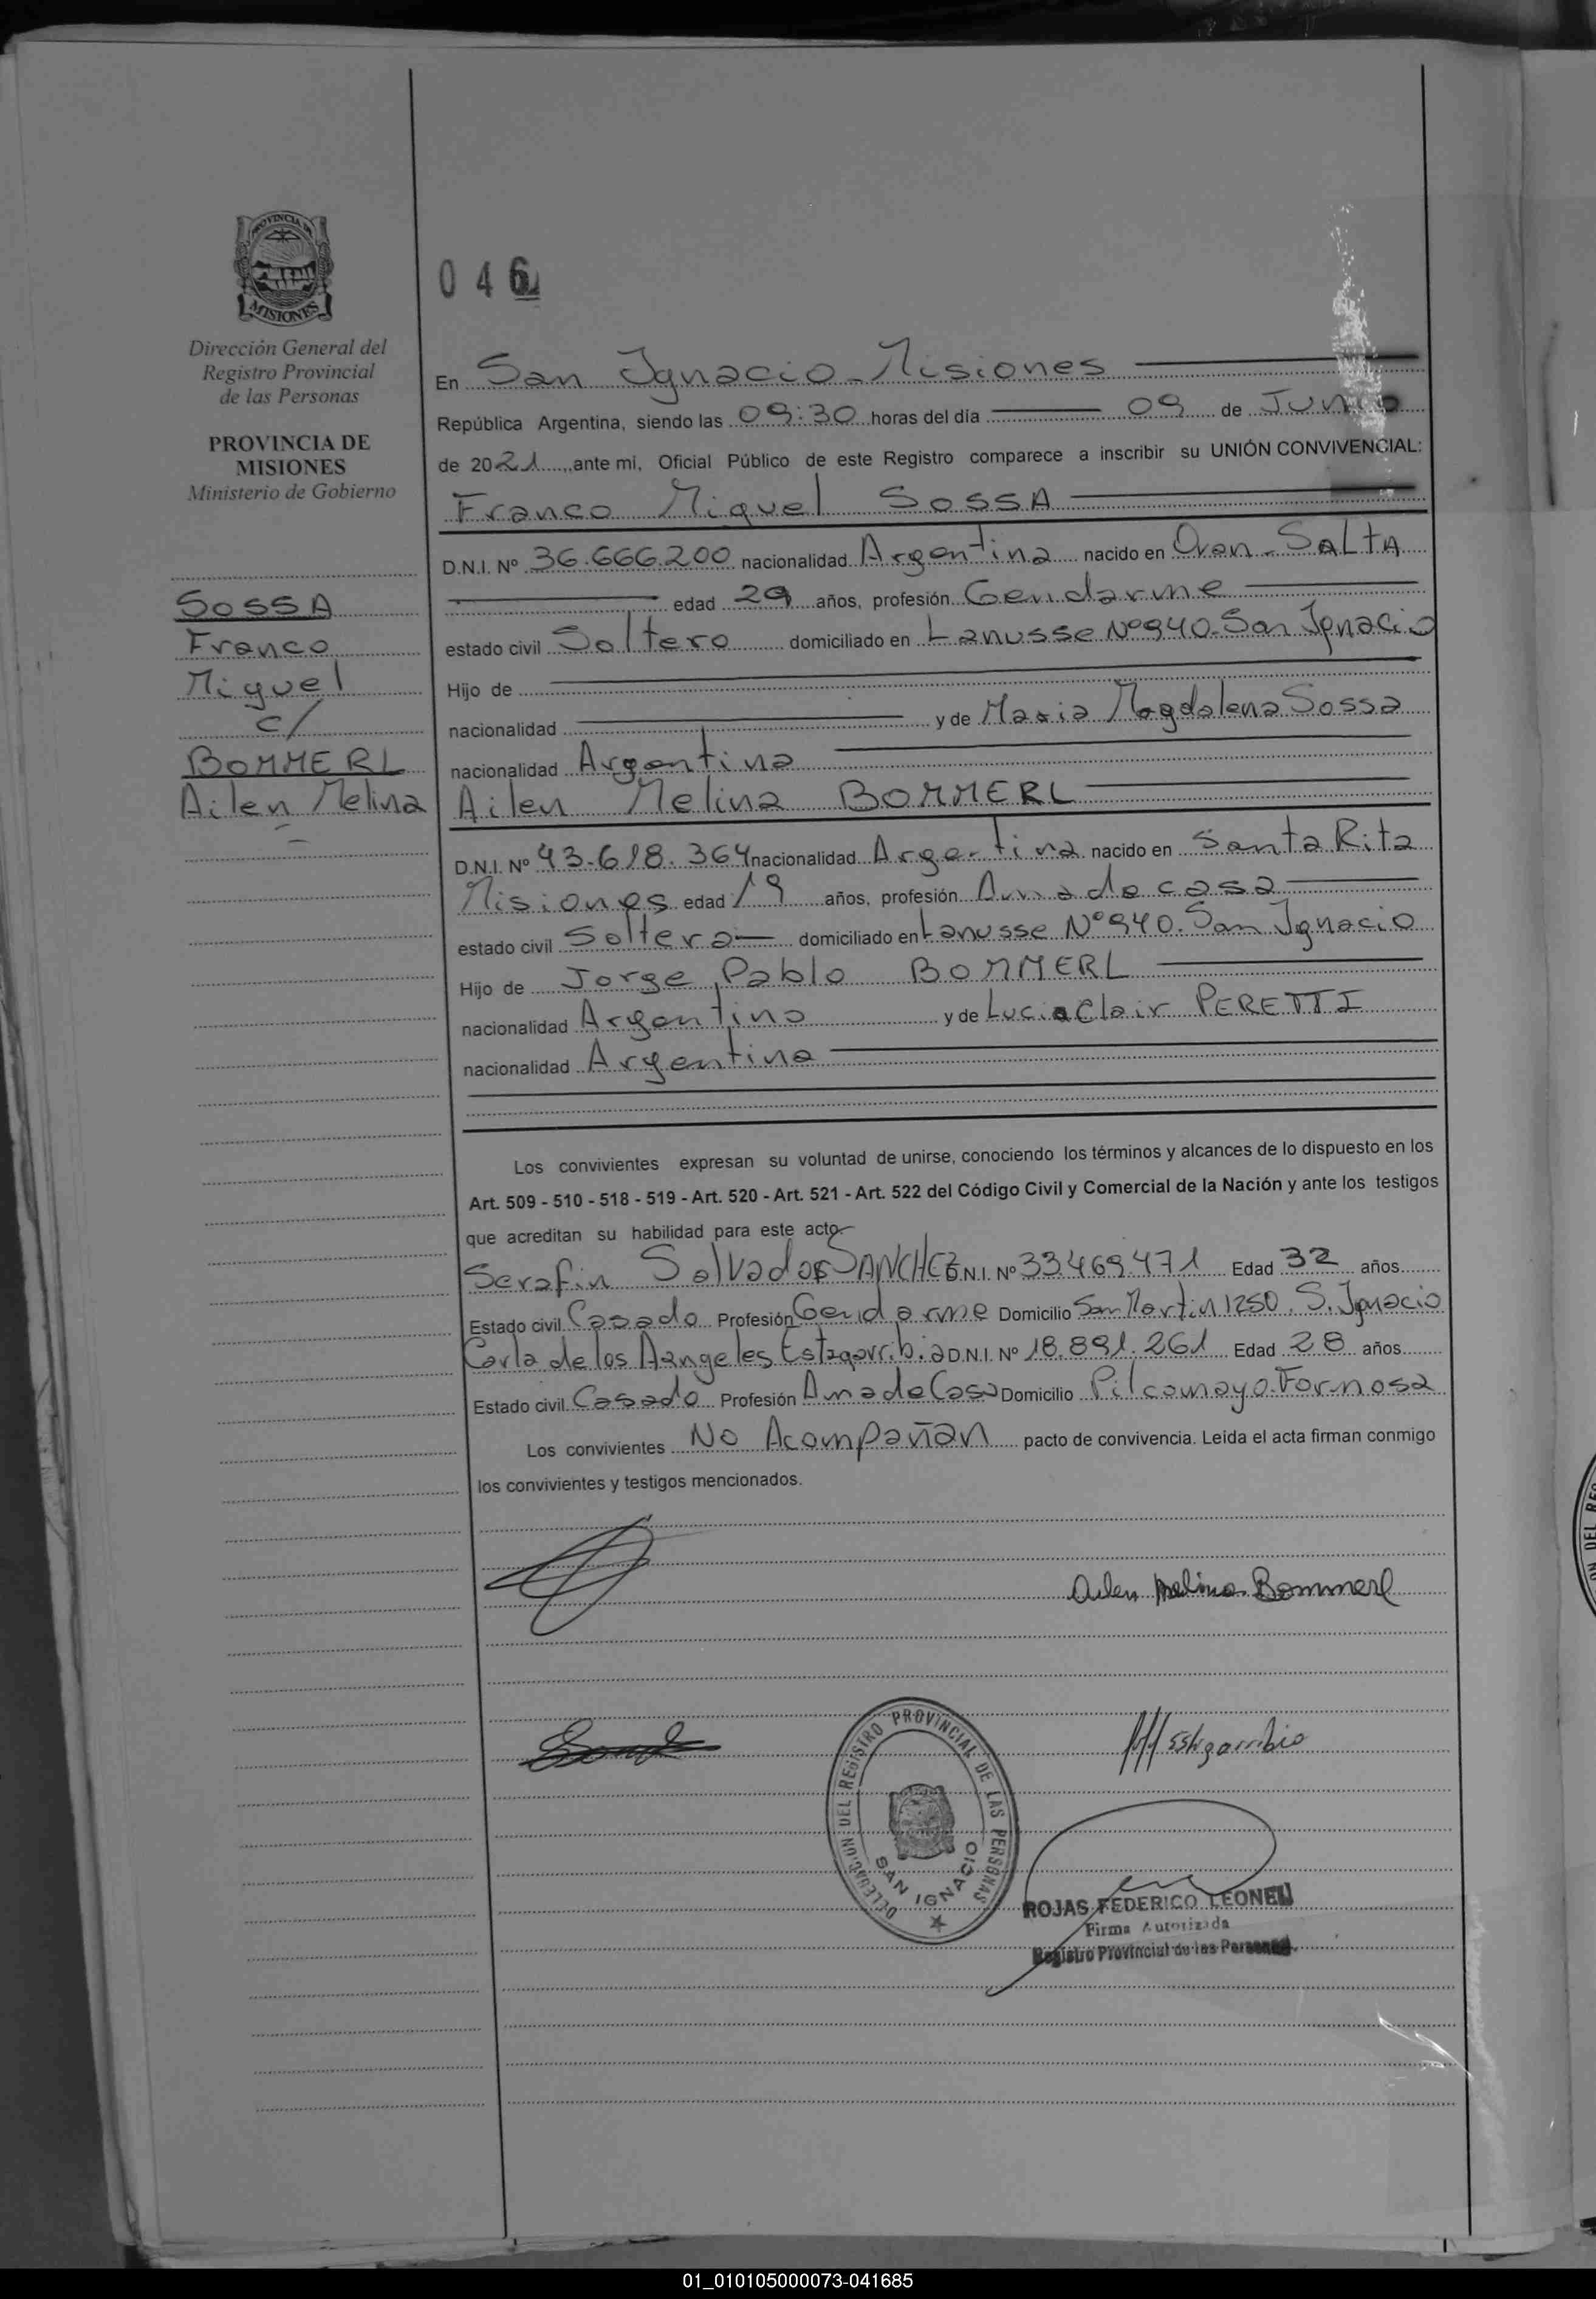 PROVINCIA DE
MISIONES
Dirección General del
Registro Provincial
de las Personas
PROVINCIA DE
MISIONES
Ministerio de Gobierno
SOSSA
Franco
Miguel
c/
BOMMERL
Ailen Melina
046
En San Ignacio - Misiones
República Argentina, siendo las 09:30 horas del día 09 de Junio
de 2021, ante mi, Oficial Público de este Registro comparece a inscribir su UNIÓN CONVIVENCIAL:
Franco Miguel SOSSA
D.N.I. Nº 36.666.200 nacionalidad Argentina nacido en Oran - SALTA
edad 29 años, profesión Gendarme
estado civil Soltero domiciliado en Lanusse Nº 940 - San Ignacio
Hijo de
nacionalidad y de Maria Magdalena Sossa
nacionalidad Argentina
Ailen Melina BOMMERL
D.N.I. Nº 43.618.364 nacionalidad Argentina nacido en Santa Rita
Misiones edad 19 años, profesión Ama de casa
estado civil Soltera domiciliado en Lanusse Nº 940. San Ignacio
Hijo de Jorge Pablo BOMMERL
nacionalidad Argentino y de Lucia Clair PERETTI
nacionalidad Argentina
Los convivientes expresan su voluntad de unirse, conociendo los términos y alcances de lo dispuesto en los
Art. 509 - 510 - 518 - 519 - Art. 520 - Art. 521 - Art. 522 del Código Civil y Comercial de la Nación y ante los testigos
que acreditan su habilidad para este acto
Serafin Salvador SANCHEZ D.N.I. Nº 33.469.471 Edad 32 años
Estado civil Casado Profesión Gendarme Domicilio San Martin 1250. S. Ignacio
Carla de los Aangeles Estagarribia D.N.I. Nº 18.891.261 Edad 28 años
Estado civil Casado Profesión Ama de Casa Domicilio Pilcomayo - Formosa
Los convivientes No Acompañan pacto de convivencia. Leida el acta firman conmigo
los convivientes y testigos mencionados.
Ailen Melina Bommerl
Estigarribia
DELEGACION DEL REGISTRO PROVINCIAL DE LAS PERSONAS
SAN IGNACIO
ROJAS FEDERICO LEONEL
Firma Autorizada
Registro Provincial de las Personas
01_010105000073-041685